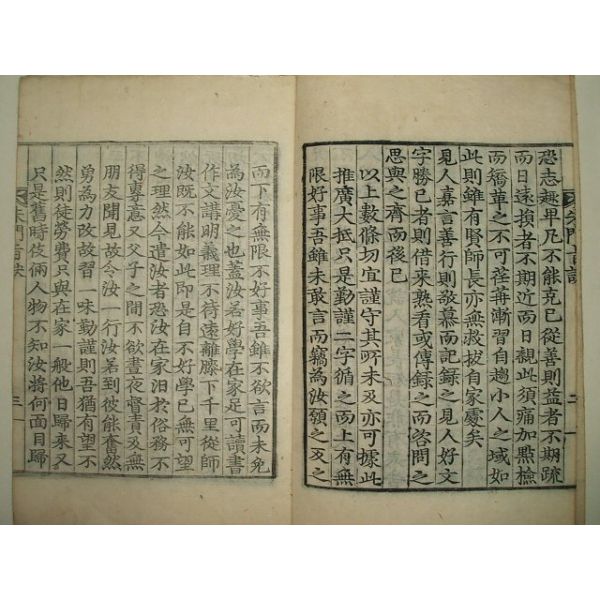 朱門旨訣
二
恐志趣卑凡不能克已從善則益者不期疏
而日遠損者不期近而日親此須痛加點檢
而矯革之不可荏苒漸習自趨小人之域如
此則雖有賢師長亦無救拔自家處矣
見人嘉言善行則敬慕而記錄之見人好文
字勝已者則借來熟看或傳錄之而咨問之
思與之齊而後已
以上數條切宜謹守其所未及亦可據此
推廣大抵只是勤謹二字循之而上有無
限好事吾雖未敢言而竊為汝願之反之
而下有無限不好事吾雖不欲言而未免
為汝憂之也蓋汝若好學在家足可讀書
作文講明義理不待遠離膝下千里從師
汝既不能如此即是自不好學已無可望
之理然今遣汝者恐汝在家汨於俗務不
得專意又父子之間不欲晝夜督責及無
朋友聞見故令汝一行汝若到彼能奮然
勇為力改故習一味勤謹則吾猶有望不
然則徒勞費只與在家一般他日歸來又
只是舊時伎倆人物不知汝將何面目歸
朱門旨訣
三